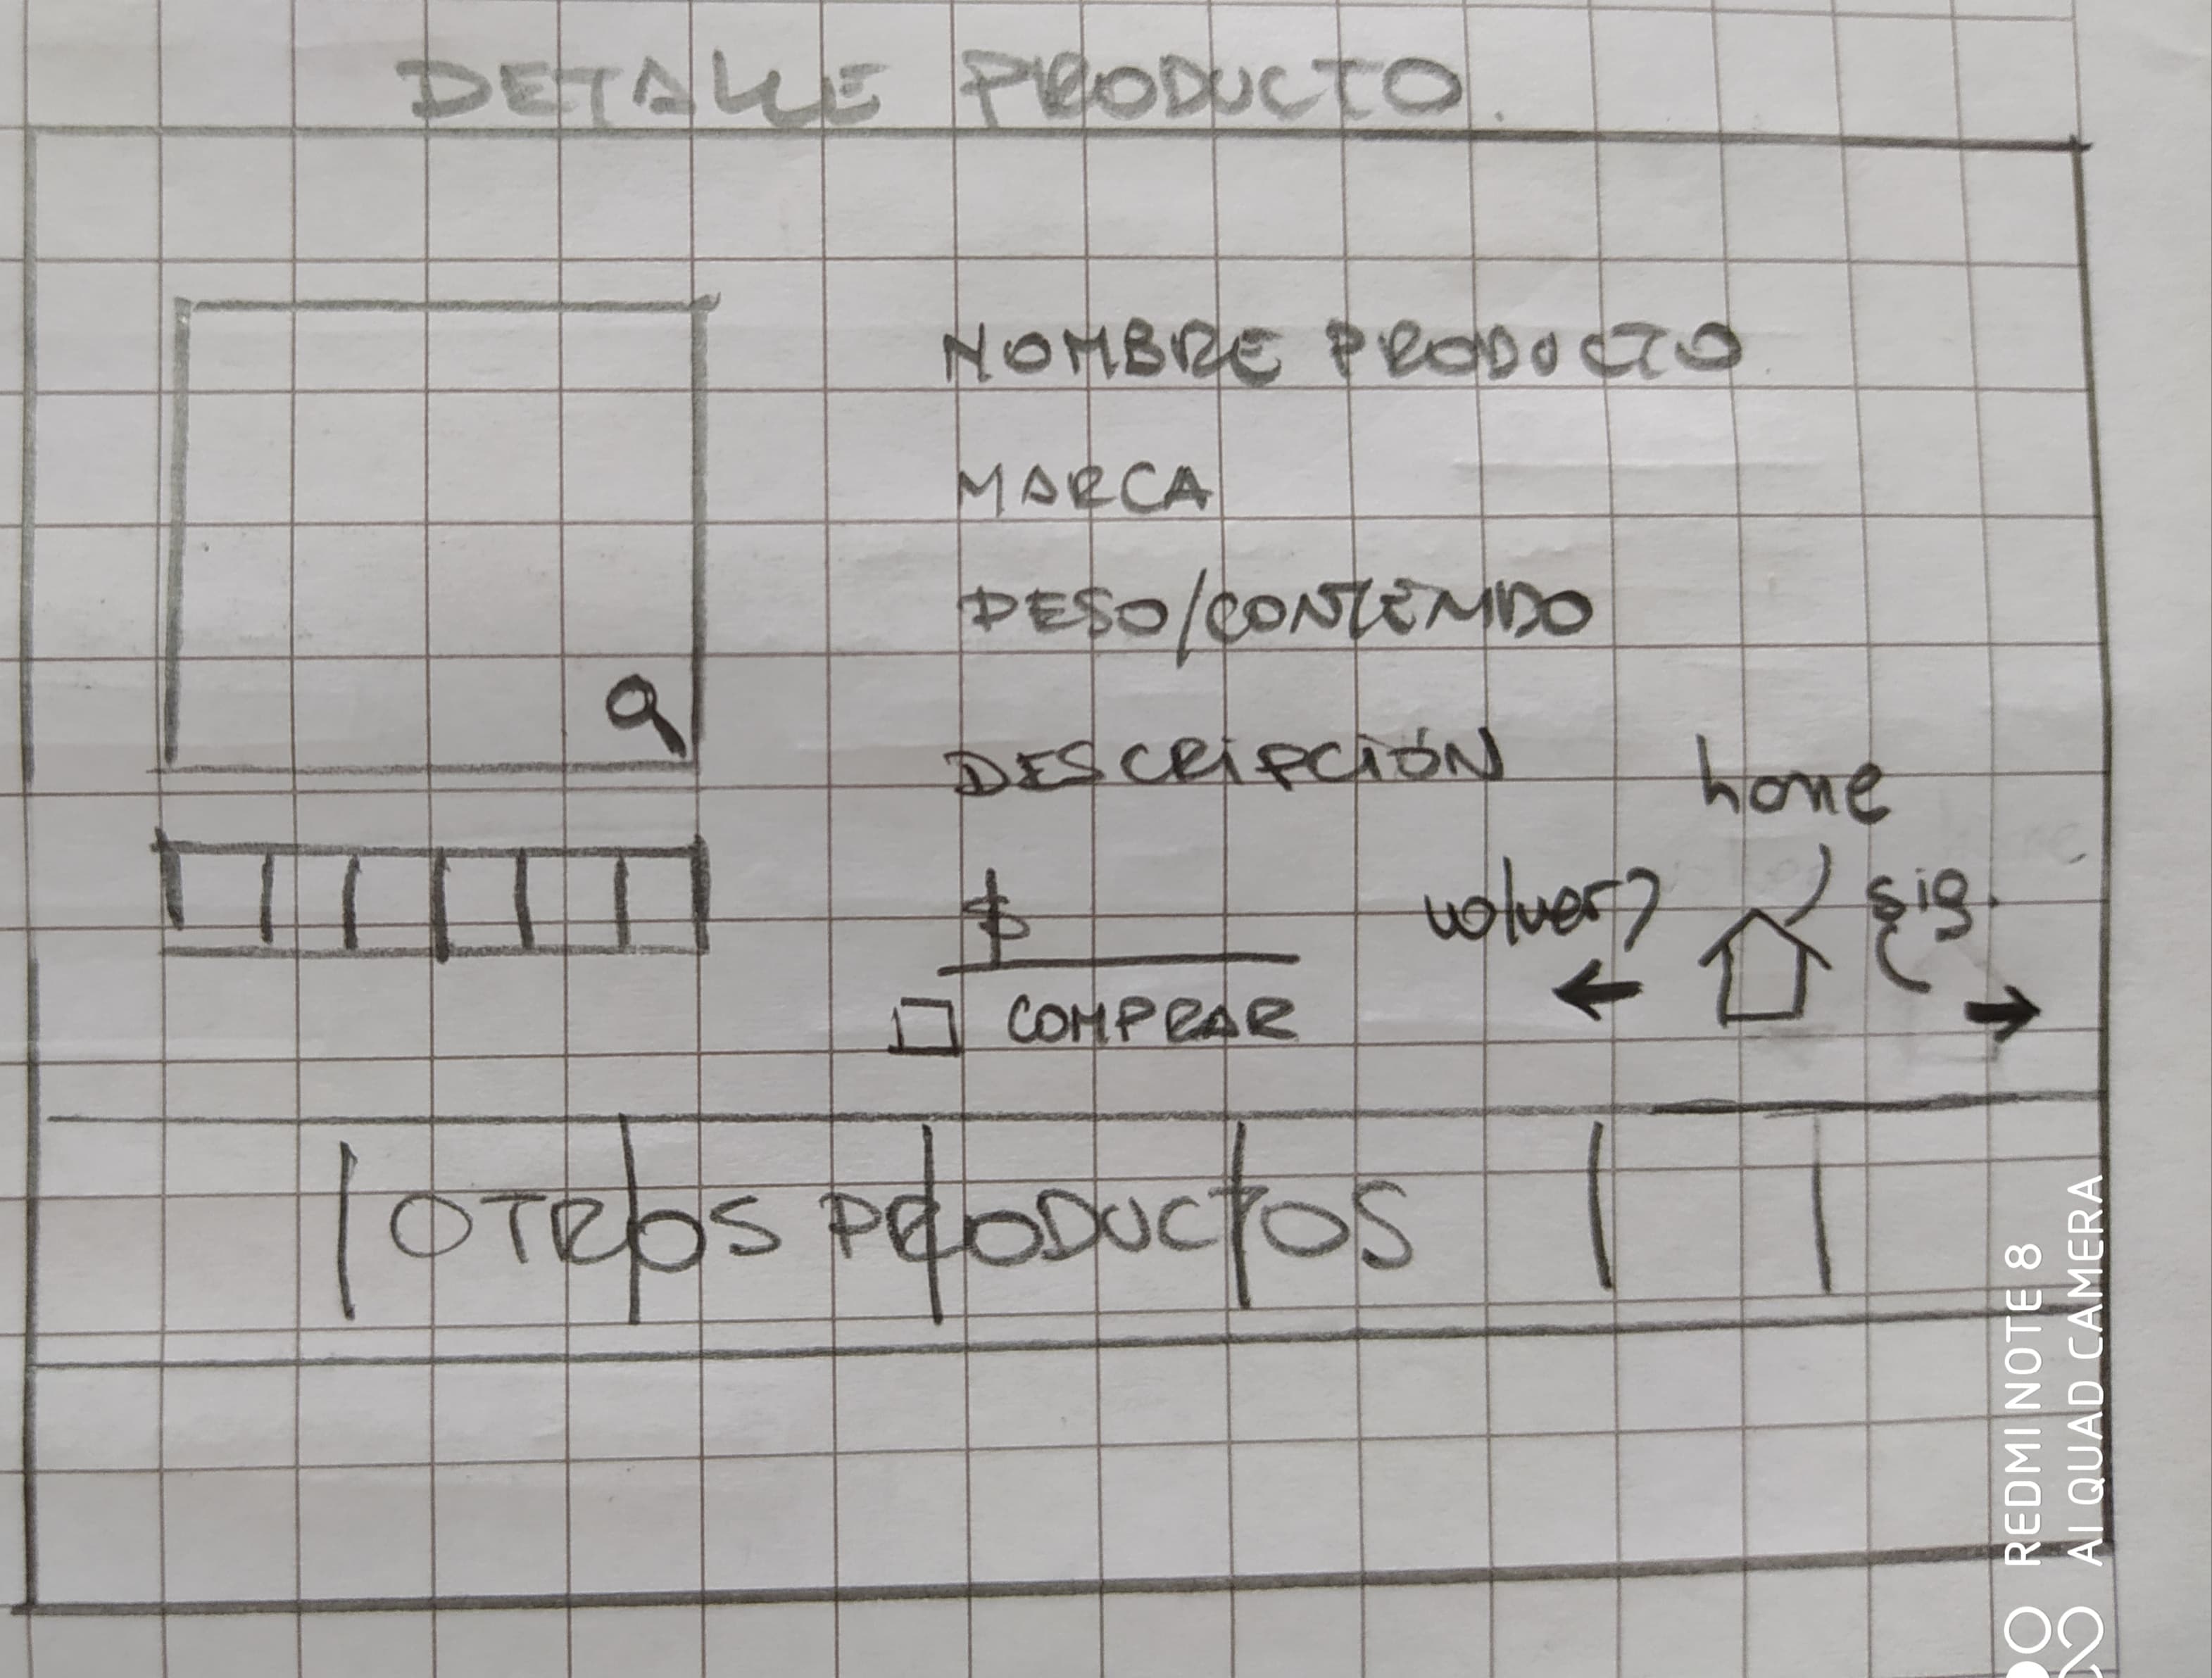 DETALLE PRODUCTO.
NOMBRE PRODUCTO
MARCA
PESO/CONTENIDO
DESCRIPCIÓN
home
$
volver
sig.
COMPRAR
OTROS PRODUCTOS
REDMI NOTE 8
AI QUAD CAMERA